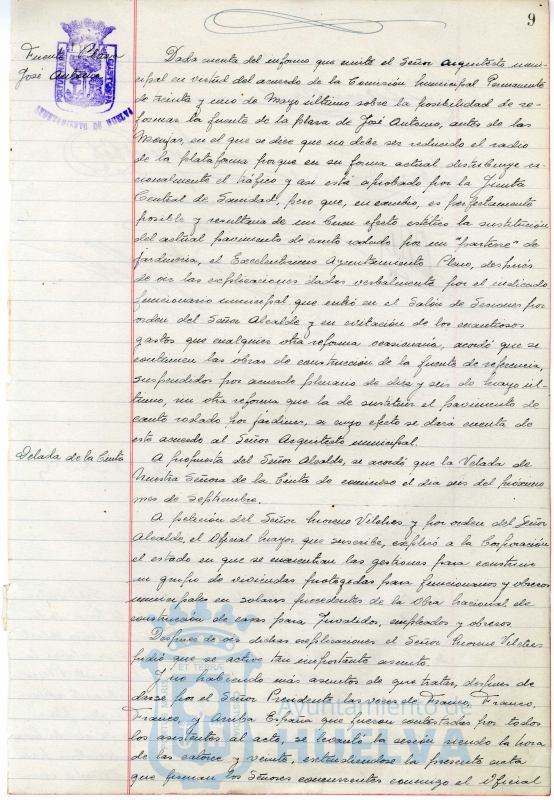 9
Fuente Plaza
José Antonio
AYUNTAMIENTO DE HUELVA
Dada cuenta del informe que emite el Señor Arquitecto muni-
cipal en virtud del acuerdo de la Comisión Municipal Permanente
de treinta y uno de Mayo último sobre la posibilidad de re-
formar la fuente de la plaza de José Antonio, antes de las
Monjas, en el que se dice que no debe ser reducido el radio
de la plataforma porque en su forma actual distribuye ra-
cionalmente el tráfico y así está aprobado por la Junta
Central de Sanidad, pero que, en cambio, es perfectamente
posible y resultaría de un buen efecto estético la sustitución
del actual pavimento de canto rodado por un "parterre" de
jardinería, el Excelentísimo Ayuntamiento Pleno, después
de oir las explicaciones dadas verbalmente por el indicado
funcionario municipal que entró en el Salón de Sesiones por
orden del Señor Alcalde y en evitación de los cuantiosos
gastos que cualquier otra reforma ocasionaría, acordó que se
continuen las obras de construcción de la fuente de referencia,
suspendidas por acuerdo plenario de diez y seis de Mayo úl-
timo, sin otra reforma que la de sustituir el pavimento de
canto rodado por jardines, a cuyo efecto se dará cuenta de
este acuerdo al Señor Arquitecto municipal.
Velada de la Cinta
A propuesta del Señor Alcalde, se acordó que la Velada de
Nuestra Señora de la Cinta dé comienzo el día seis del próximo
mes de Septiembre.
A petición del Señor Moreno Vilches y por orden del Señor
Alcalde, el Oficial Mayor que suscribe, explicó a la Corporación
el estado en que se encuentran las gestiones para construir
un grupo de viviendas protegidas para funcionarios y obreros
municipales en solares procedentes de la Obra Nacional de
construcción de casas para Inválidos, empleados y obreros.
Después de oir dichas explicaciones el Señor Moreno Vilches
pidió que se active tan importante asunto.
Y no habiendo más asuntos de que tratar, después de
darse por el Señor Presidente las voces de Franco, Franco,
Franco, y Arriba España que fueron contestadas por todos
los asistentes al acto, se levantó la sesión siendo la hora
de las catorce y veinte, extendiéndose la presente acta
que firman los Señores concurrentes conmigo el Oficial
Ayuntamiento de
HUELVA